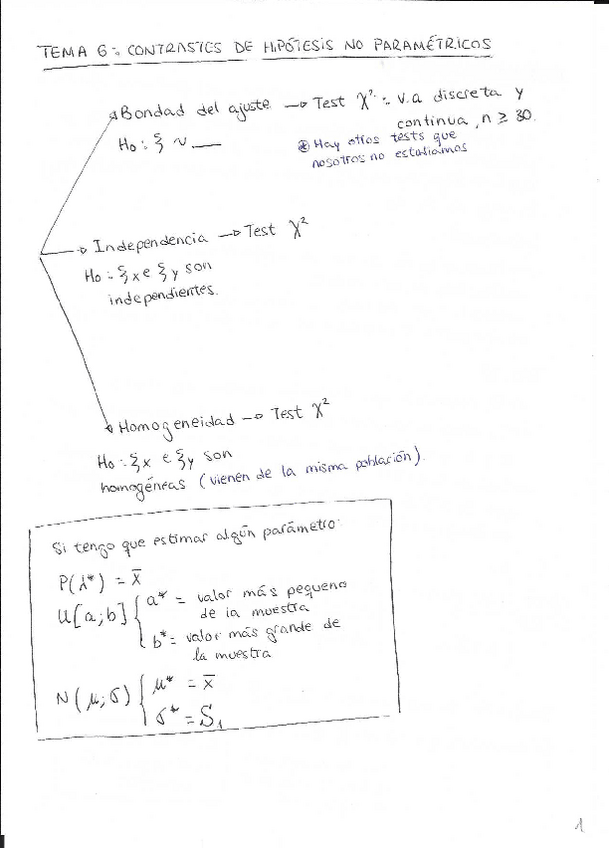 TEMA 6: CONTRASTES DE HIPÓTESIS NO PARAMÉTRICOS
Bondad del ajuste → Test χ²: v.a discreta y
continua, n ≥ 30.
Ho: ξ ~ __
* Hay otros tests que
nosotros no estudiamos
Independencia → Test χ²
Ho: ξx e ξy son
independientes.
Homogeneidad → Test χ²
Ho: ξx e ξy son
homogéneas (vienen de la misma población).
Si tengo que estimar algún parámetro:
P(λ*) = x̄
U[a;b] { a* = valor más pequeno
de la muestra
b* = valor más grande de
la muestra
N(μ;σ) { μ* = x̄
σ* = S₁
1